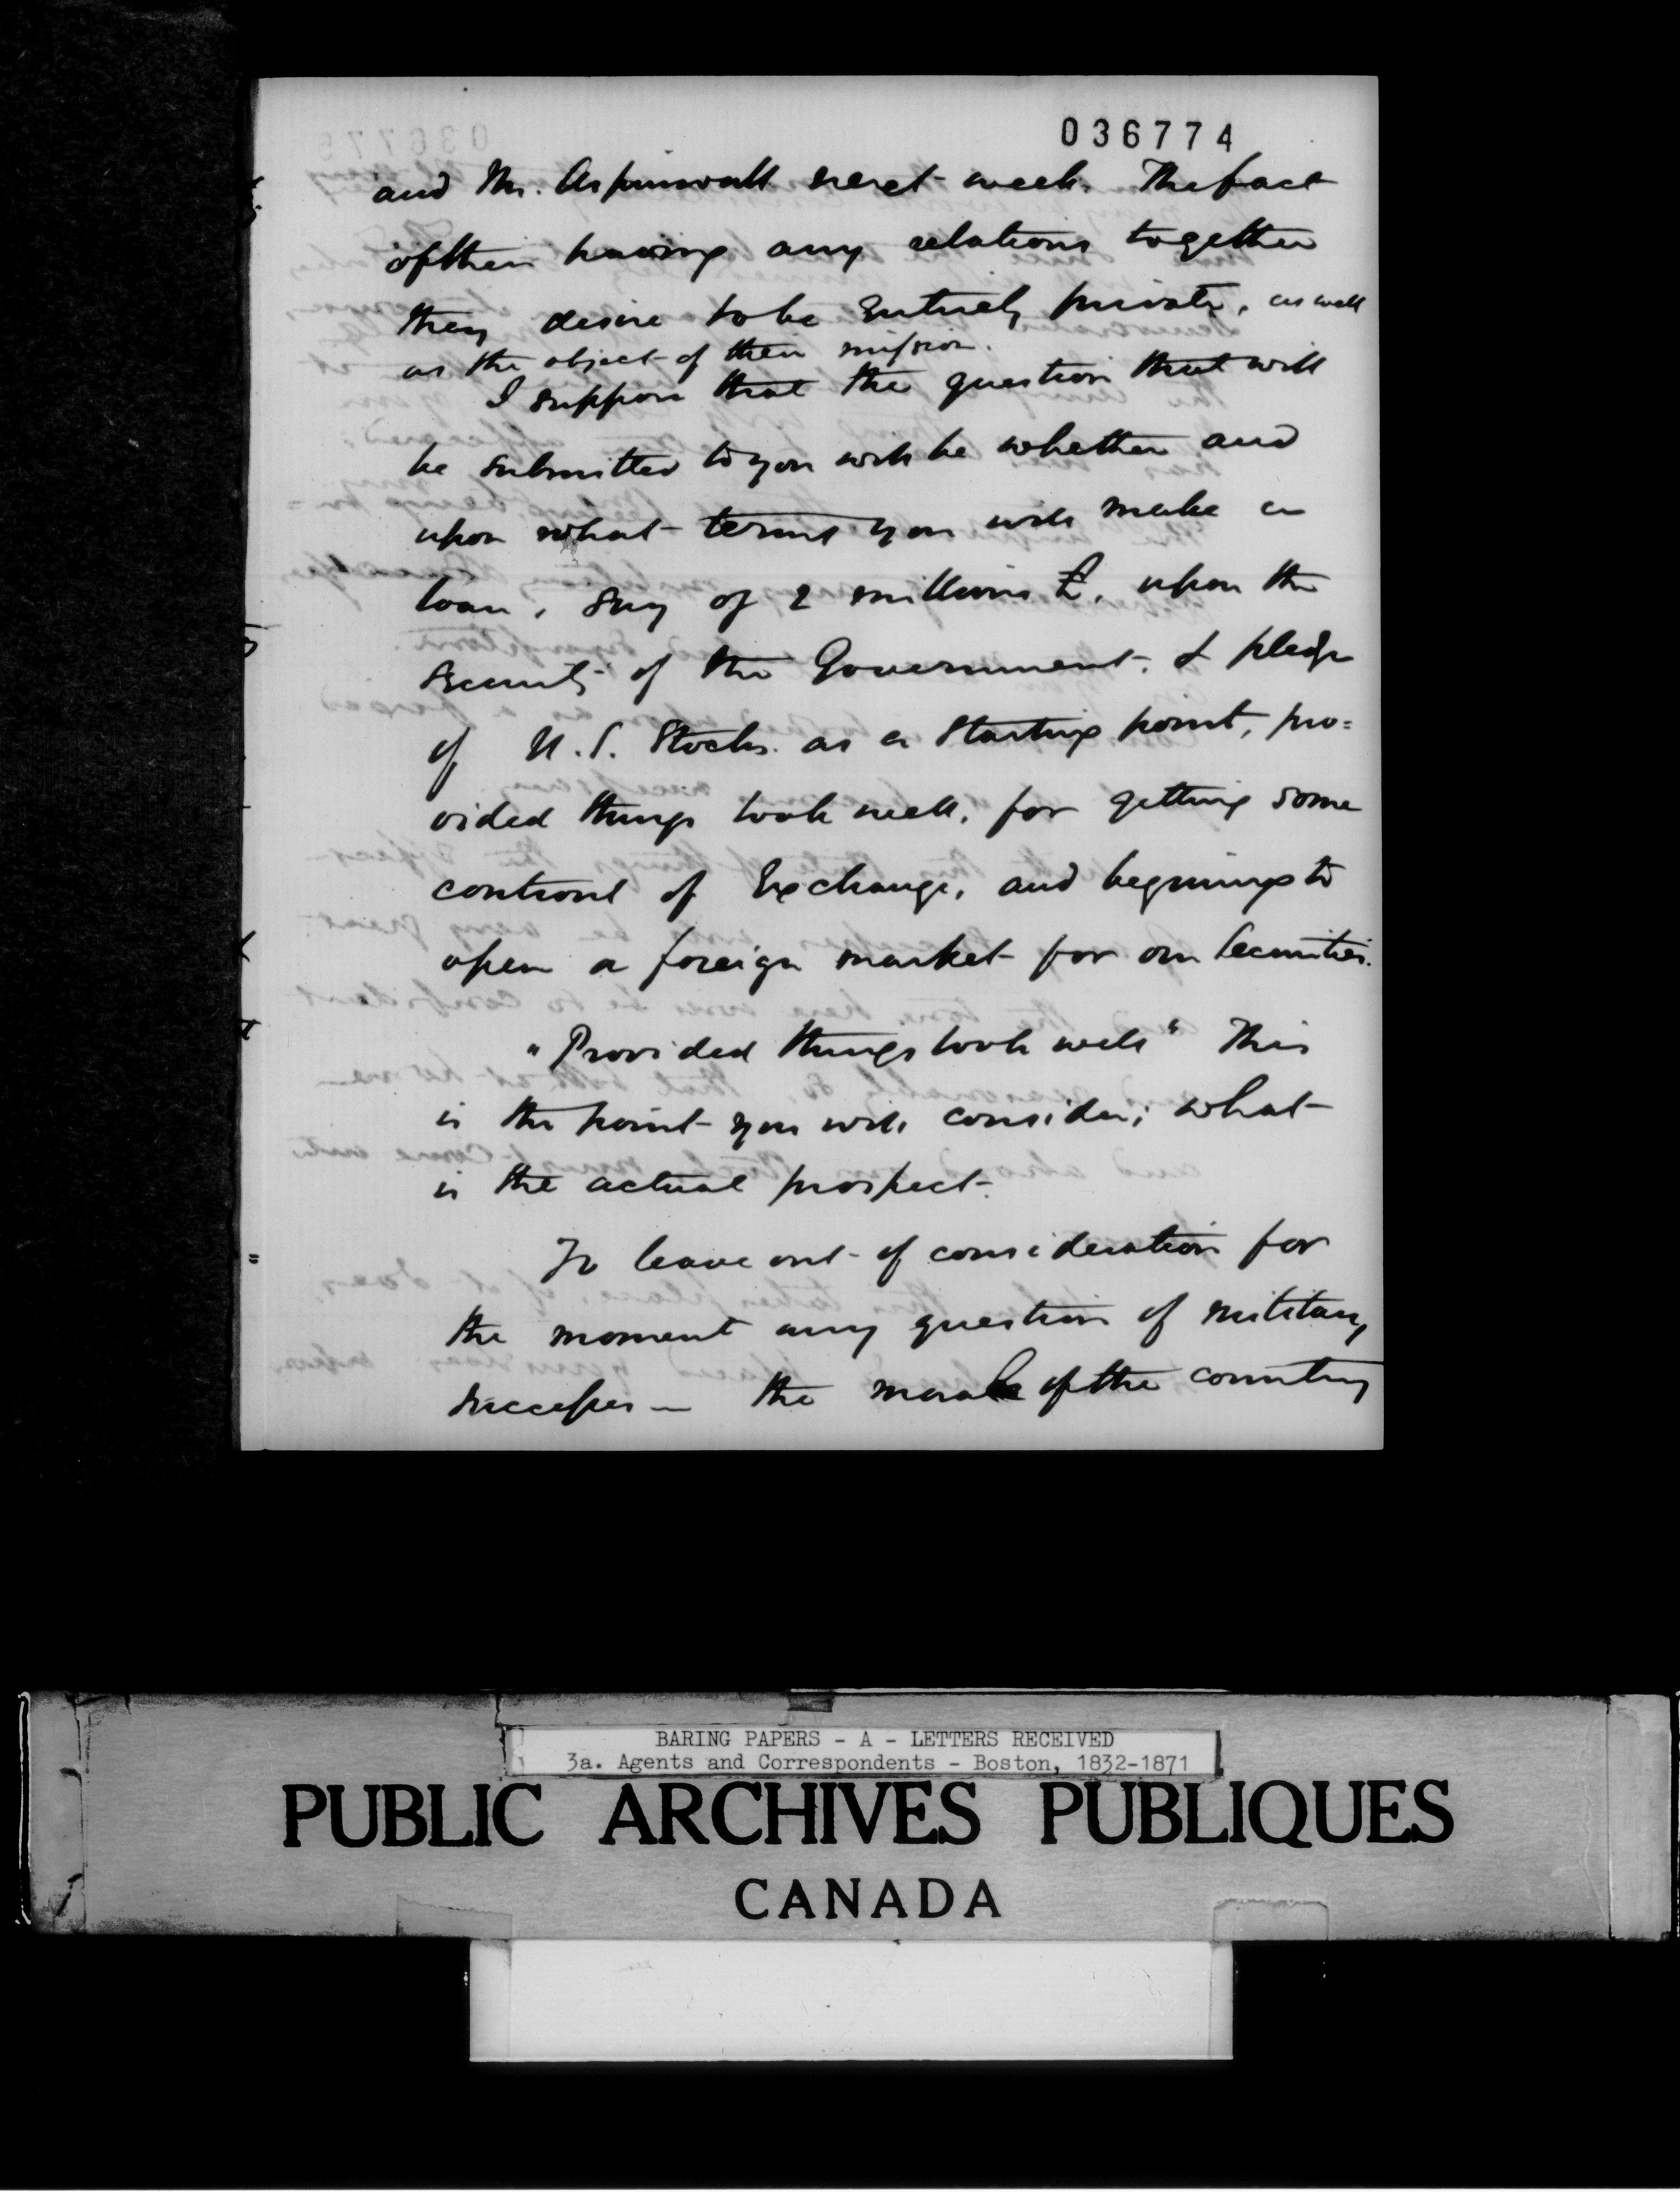 036774
and Mr. Aspinwall next week. The fact
of their having any relations together
they desire to be entirely private, as well
as the object of their mission.
I suppose that the question that will
be submitted to you will be whether and
upon what terms you will make a
loan, say of 2 millions £. upon the
security of the Government, & pledge
of U.S. Stocks. as a starting point, pro=
vided things look well, for getting some
controul of Exchange, and beginning to
open a foreign market for our Securities.
"Provided things look well" This
is the point you will consider; what
is the actual prospect.
To leave out of consideration for
the moment any question of military
successes — the morale of the country
BARING PAPERS - A - LETTERS RECEIVED
3a. Agents and Correspondents - Boston, 1832-1871
PUBLIC ARCHIVES PUBLIQUES
CANADA